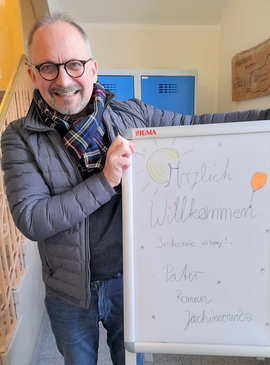 SIGMA
Herzlich
Willkommen
Serdecznie witamy! -
Pater
Roman
Jachimowicz